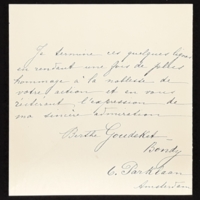 Je termine ces quelques lignes
en rendant une fois de plus
hommage à la noblesse de
votre action et en vous
l'expression de
ma sincère admiration
Berthe Goudeket-
Bondy
C. Parklaan
Amsterdam